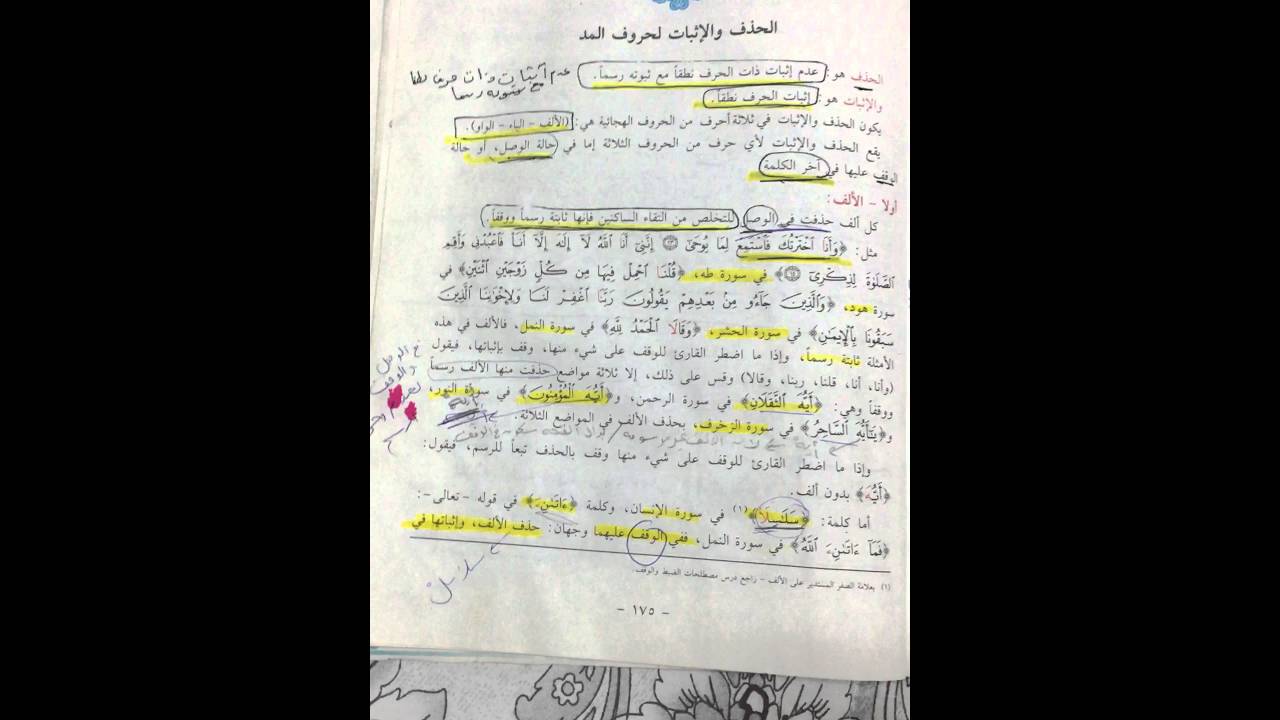 الحذف والإثبات لحروف المد
الحذف هو: عدم إثبات ذات الحرف نطقاً مع ثبوته رسماً.
والإثبات هو: إثبات الحرف نطقاً.
يكون الحذف والإثبات في ثلاثة أحرف من الحروف الهجائية هي: (الألف - الياء - الواو).
يقع الحذف والإثبات لأي حرف من الحروف الثلاثة إما في حالة الوصل، أو حالة
الوقف عليها في آخر الكلمة
أولا - الألف:
كل ألف حذفت في الوصل للتخلص من التقاء الساكنين فإنها ثابتة رسماً ووقفاً.
مثل: ﴿وَأَنَا ٱخْتَرْتُكَ فَٱسْتَمِعْ لِمَا يُوحَىٰٓ ۝ إِنَّنِىٓ أَنَا ٱللَّهُ لَآ إِلَٰهَ إِلَّآ أَنَا۠ فَٱعْبُدْنِى وَأَقِمِ
ٱلصَّلَوٰةَ لِذِكْرِىٓ ۝﴾ في سورة طه، ﴿قُلْنَا ٱحْمِلْ فِيهَا مِن كُلٍّ زَوْجَيْنِ ٱثْنَيْنِ﴾ في
سورة هود، ﴿وَٱلَّذِينَ جَآءُو مِنۢ بَعْدِهِمْ يَقُولُونَ رَبَّنَا ٱغْفِرْ لَنَا وَلِإِخْوَٰنِنَا ٱلَّذِينَ
سَبَقُونَا بِٱلْإِيمَٰنِ﴾ في سورة الحشر، ﴿وَقَالَا ٱلْحَمْدُ لِلَّهِ﴾ في سورة النمل، فالألف في هذه
الأمثلة ثابتة رسماً، وإذا ما اضطر القارئ للوقف على شيء منها، وقف بإثباتها، فيقول
(وأنا، أنا، قلنا، ربنا، وقالا) وقس على ذلك، إلا ثلاثة مواضع حذفت منها الألف رسماً
ووقفاً وهي: ﴿أَيُّهَ ٱلثَّقَلَانِ﴾ في سورة الرحمن، و﴿أَيُّهَ ٱلْمُؤْمِنُونَ﴾ في سورة النور،
و﴿يَٰٓأَيُّهَ ٱلسَّاحِرُ﴾ في سورة الزخرف، بحذف الألف في المواضع الثلاثة.
وإذا ما اضطر القارئ للوقف على شيء منها وقف بالحذف تبعاً للرسم، فيقول:
﴿أَيُّهَ﴾ بدون ألف.
أما كلمة: ﴿سَلَٰسِلَا۟﴾ (١) في سورة الإنسان، وكلمة ﴿ءَاتَىٰنِۦَ﴾ في قوله -تعالى-:
﴿فَمَآ ءَاتَىٰنِۦَ ٱللَّهُ﴾ في سورة النمل، ففي الوقف عليهما وجهان: حذف الألف، وإثباتها في
(١) بعلامة الصفر المستدير على الألف - راجع درس مصطلحات الضبط والوقف.
- ١٧٥ -